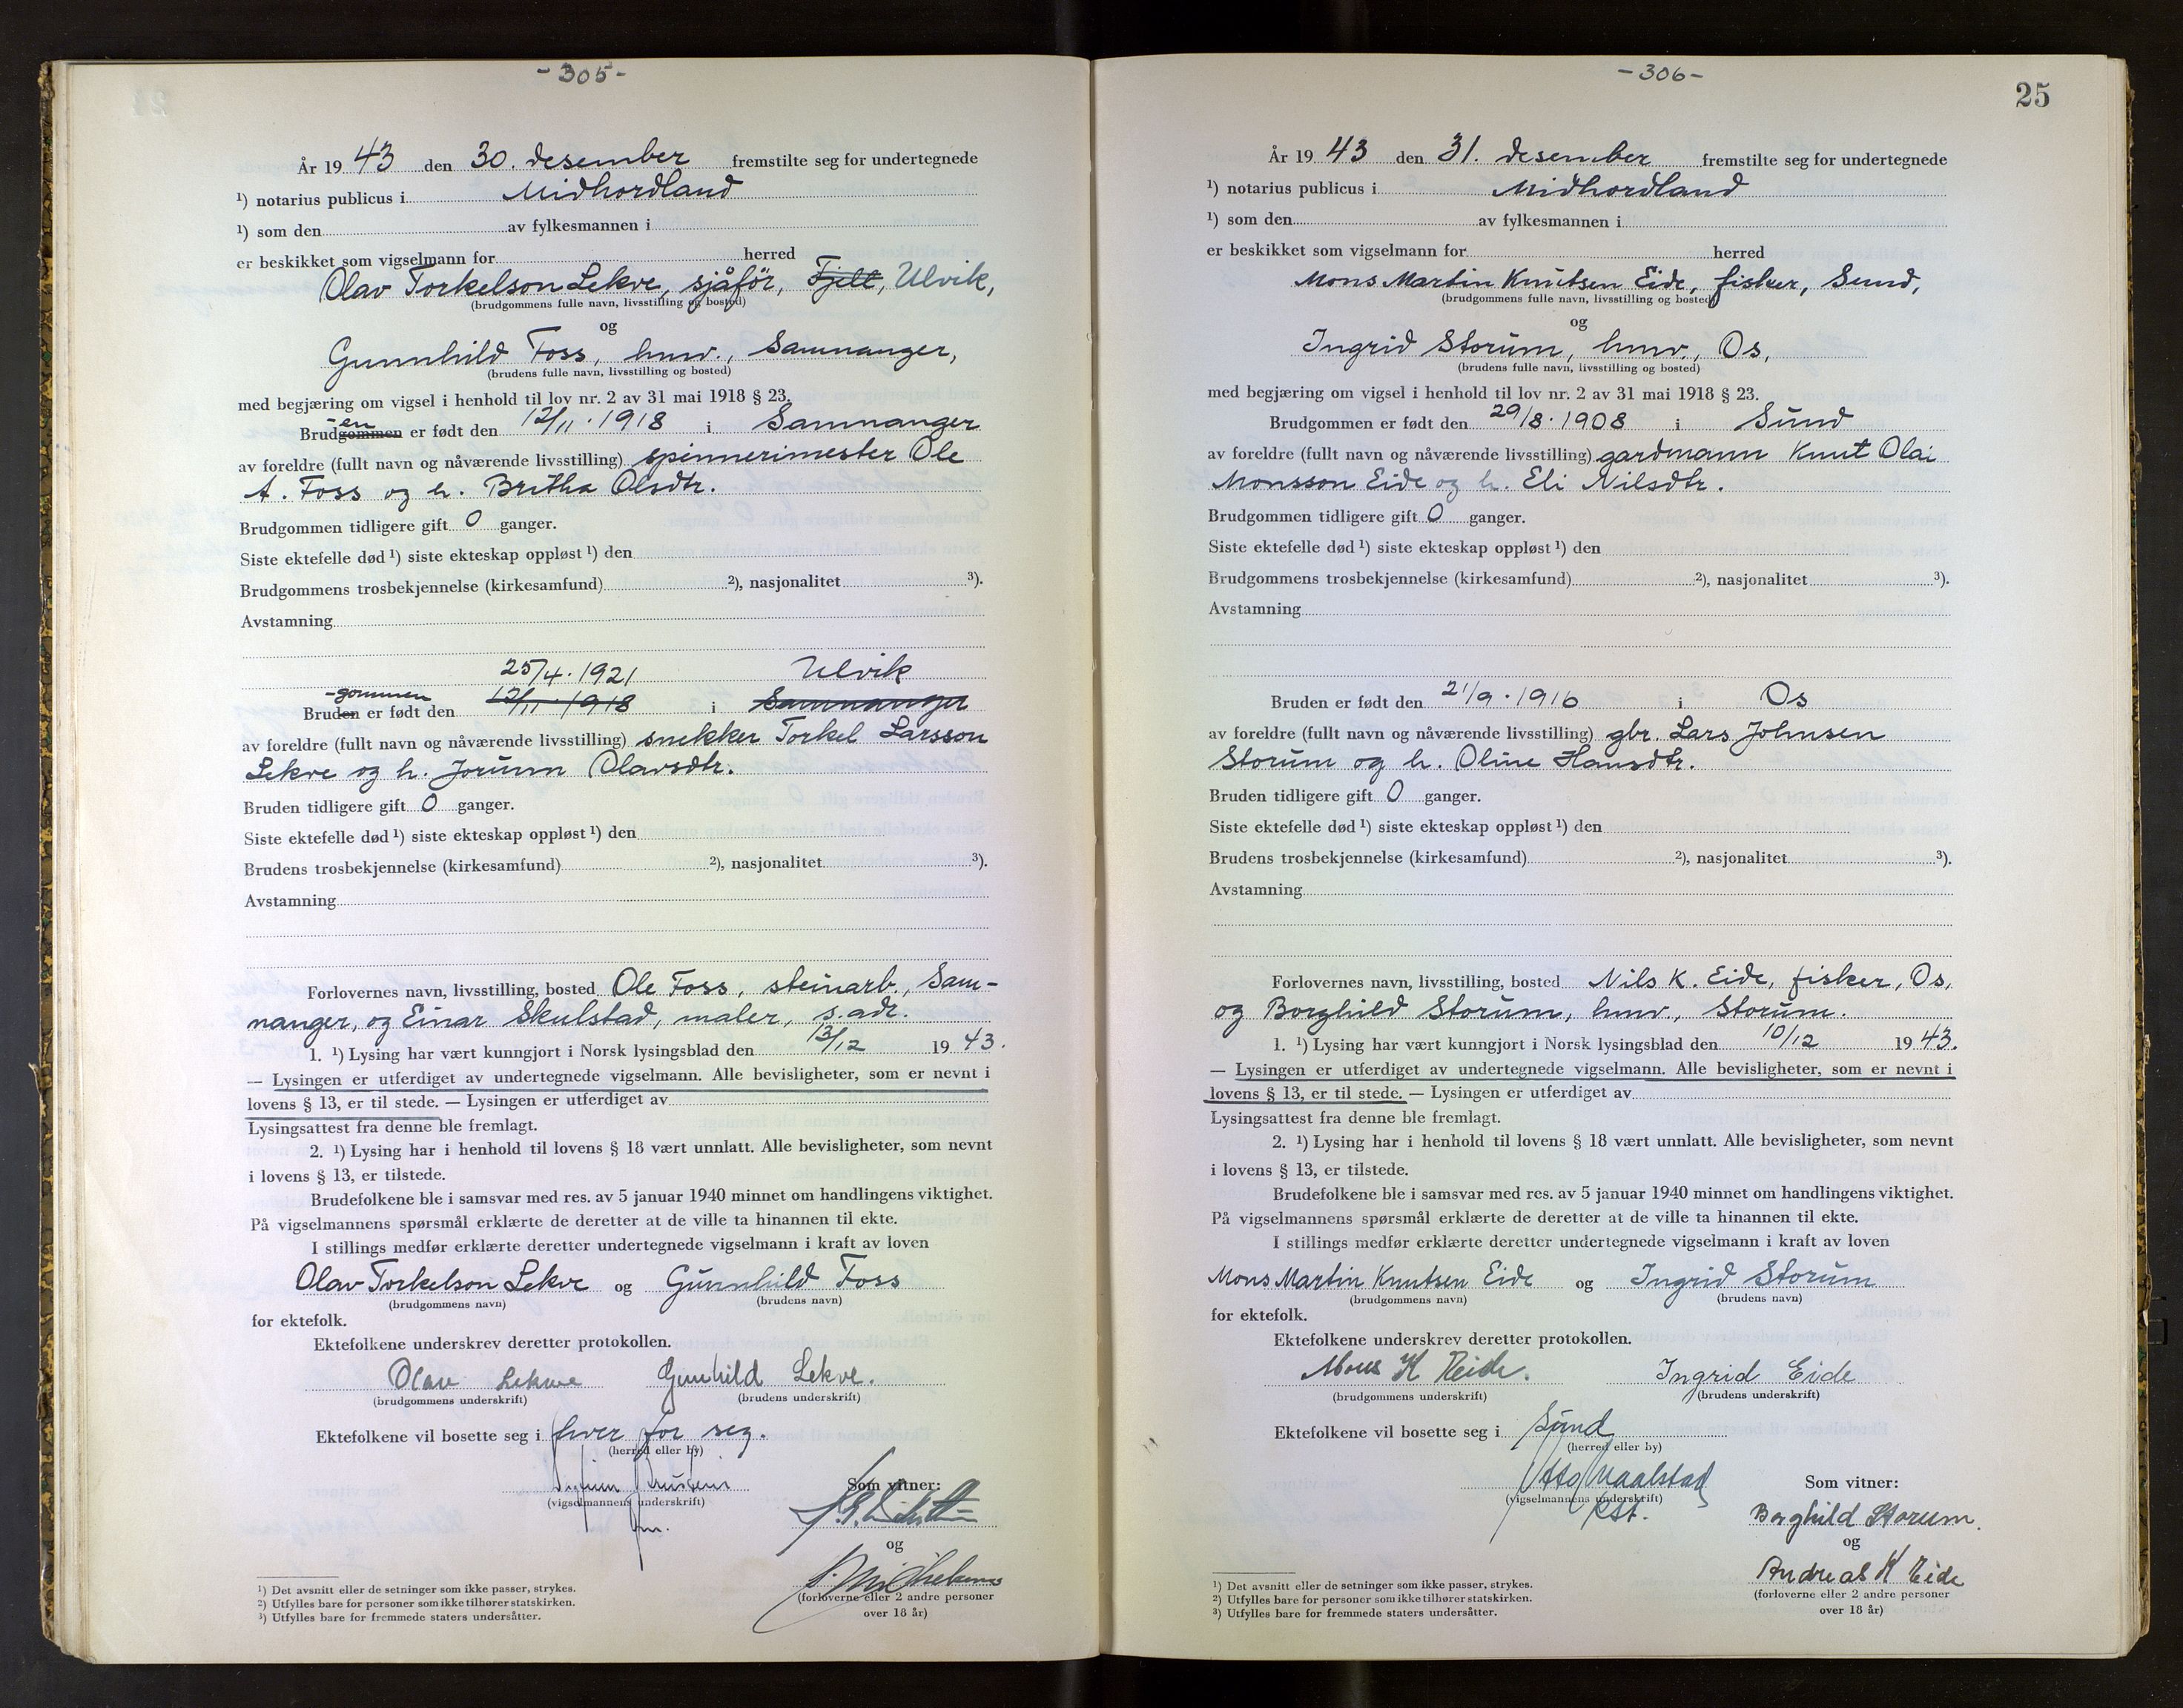 - 305 -
År 19 43 den 30. desember fremstilte seg for undertegnede
¹) notarius publicus i Midhordland
¹) som den av fylkesmannen i
er beskikket som vigselmann for herred
Olav Torkelson Lekve, sjåför, Fjell, Ulvik,
(brudgommens fulle navn, livsstilling og bosted)
og
Gunnhild Foss, hmv., Samnanger,
(brudens fulle navn, livsstilling og bosted)
med begjæring om vigsel i henhold til lov nr. 2 av 31 mai 1918 § 23.
-en
Brudgommen er født den 12/11. 1918 i Samnanger
av foreldre (fullt navn og nåværende livsstilling) spinnerimester Ole
A. Foss og h. Britha Olsdtr.
Brudgommen tidligere gift 0 ganger.
Siste ektefelle død ¹) siste ekteskap oppløst ¹) den
Brudgommens trosbekjennelse (kirkesamfund) ²), nasjonalitet ³).
Avstamning
25/4. 1921 Ulvik
-gommen
Bruden er født den 12/11 1918 i Samnanger
av foreldre (fullt navn og nåværende livsstilling) snekker Torkel Larsson
Lekve og h. Jorunn Olavsdtr.
Bruden tidligere gift 0 ganger.
Siste ektefelle død ¹) siste ekteskap oppløst ¹) den
Brudens trosbekjennelse (kirkesamfund) ²), nasjonalitet ³).
Avstamning
Forlovernes navn, livsstilling, bosted Ole Foss, steinarb., Sam-
nanger, og Einar Skulstad, maler, s. adr.
1. ¹) Lysing har vært kunngjort i Norsk lysingsblad den 13/12 19 43.
— Lysingen er utferdiget av undertegnede vigselmann. Alle bevisligheter, som er nevnt i
lovens § 13, er til stede. — Lysingen er utferdiget av
Lysingsattest fra denne ble fremlagt.
2. ¹) Lysing har i henhold til lovens § 18 vært unnlatt. Alle bevisligheter, som nevnt
i lovens § 13, er tilstede.
Brudefolkene ble i samsvar med res. av 5 januar 1940 minnet om handlingens viktighet.
På vigselmannens spørsmål erklærte de deretter at de ville ta hinannen til ekte.
I stillings medfør erklærte deretter undertegnede vigselmann i kraft av loven
Olav Torkelson Lekve og Gunnhild Foss
(brudgommens navn) (brudens navn)
for ektefolk.
Ektefolkene underskrev deretter protokollen.
Olav Lekve Gunhild Lekve.
(brudgommens underskrift) (brudens underskrift)
Ektefolkene vil bosette seg i hver for seg.
(herred eller by)
(vigselmannens underskrift)
fm.
Som vitner:
og
(forloverne eller 2 andre personer
over 18 år)
¹) Det avsnitt eller de setninger som ikke passer, strykes.
²) Utfylles bare for personer som ikke tilhører statskirken.
³) Utfylles bare for fremmede staters undersåtter.
- 306 -
25
År 19 43 den 31. desember fremstilte seg for undertegnede
¹) notarius publicus i Midhordland
¹) som den av fylkesmannen i
er beskikket som vigselmann for herred
Mons Martin Knutsen Eide, fisker, Sund,
(brudgommens fulle navn, livsstilling og bosted)
og
Ingrid Storum, hmv., Os,
(brudens fulle navn, livsstilling og bosted)
med begjæring om vigsel i henhold til lov nr. 2 av 31 mai 1918 § 23.
Brudgommen er født den 29/8. 1908 i Sund
av foreldre (fullt navn og nåværende livsstilling) gardmann Knut Olai
Monsson Eide og h. Eli Nilsdtr.
Brudgommen tidligere gift 0 ganger.
Siste ektefelle død ¹) siste ekteskap oppløst ¹) den
Brudgommens trosbekjennelse (kirkesamfund) ²), nasjonalitet ³).
Avstamning
Bruden er født den 21/9. 1916 i Os
av foreldre (fullt navn og nåværende livsstilling) gbr. Lars Johnsen
Storum og h. Oline Hansdtr.
Bruden tidligere gift 0 ganger.
Siste ektefelle død ¹) siste ekteskap oppløst ¹) den
Brudens trosbekjennelse (kirkesamfund) ²), nasjonalitet ³).
Avstamning
Forlovernes navn, livsstilling, bosted Nils K. Eide, fisker, Os,
og Borghild Storum, hmv., Storum.
1. ¹) Lysing har vært kunngjort i Norsk lysingsblad den 10/12 19 43.
— Lysingen er utferdiget av undertegnede vigselmann. Alle bevisligheter, som er nevnt i
lovens § 13, er til stede. — Lysingen er utferdiget av
Lysingsattest fra denne ble fremlagt.
2. ¹) Lysing har i henhold til lovens § 18 vært unnlatt. Alle bevisligheter, som nevnt
i lovens § 13, er tilstede.
Brudefolkene ble i samsvar med res. av 5 januar 1940 minnet om handlingens viktighet.
På vigselmannens spørsmål erklærte de deretter at de ville ta hinannen til ekte.
I stillings medfør erklærte deretter undertegnede vigselmann i kraft av loven
Mons Martin Knutsen Eide og Ingrid Storum
(brudgommens navn) (brudens navn)
for ektefolk.
Ektefolkene underskrev deretter protokollen.
Mons K Eide. Ingrid Eide
(brudgommens underskrift) (brudens underskrift)
Ektefolkene vil bosette seg i Sund
(herred eller by)
Otto Maalstad
(vigselmannens underskrift)
kst.
Som vitner:
Borghild Storum.
og
Andreas K Eide
(forloverne eller 2 andre personer
over 18 år)
¹) Det avsnitt eller de setninger som ikke passer, strykes.
²) Utfylles bare for personer som ikke tilhører statskirken.
³) Utfylles bare for fremmede staters undersåtter.